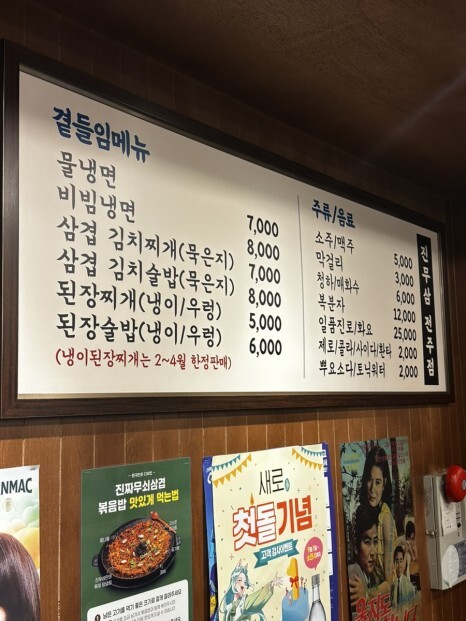 곁들임메뉴
물냉면 7,000
비빔냉면 8,000
삼겹 김치찌개(묵은지) 7,000
삼겹 김치술밥(묵은지) 8,000
된장찌개(냉이/우렁) 5,000
된장술밥(냉이/우렁) 6,000
(냉이된장찌개는 2~4월 한정판매)
주류/음료
소주/맥주 5,000
막걸리 3,000
청하/매화수 6,000
복분자 12,000
일품진로/화요 25,000
제로/콜라/사이다/환타 2,000
뿌요소다/토닉워터 2,000
진무삼 전주점
NMAC
진짜무쇠삼겹
볶음밥 맛있게 먹는법
새로
첫돌기념
고객 감사이벤트